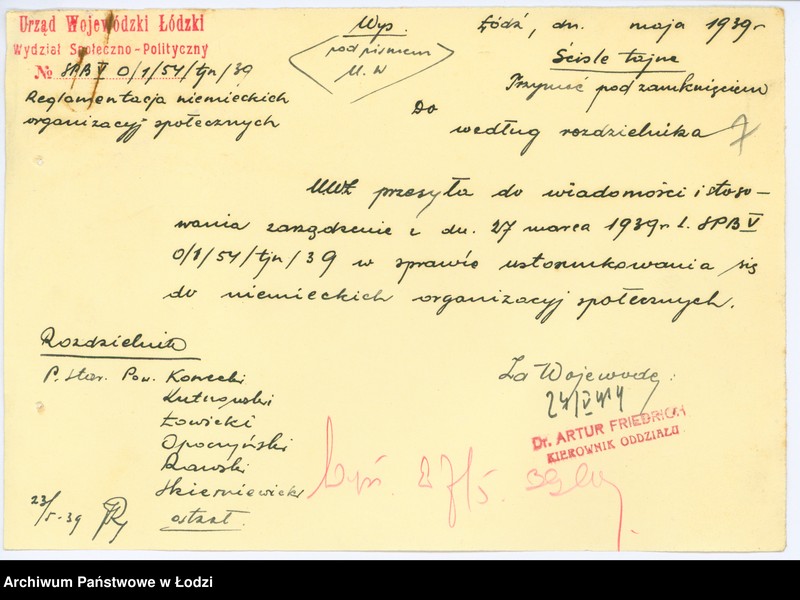 Urząd Wojewódzki Łódzki
Wydział Społeczno-Polityczny
№ SPB V 0/1/54/tjn/39
Reglamentacja niemieckich
organizacyj społecznych
Wys.
pod pismem
M. W
Łódź, dn. maja 1939 r
Ściśle tajne
Trzymać pod zamknięciem
Do
według rozdzielnika
UWŁ przesyła do wiadomości i stoso-
wania zarządzenie z dn. 27 marca 1939 r L. SPB V
0/1/54/tjn/39 w sprawie ustosunkowania się
do niemieckich organizacyj społecznych.
Rozdzielnik
P. Star. Pow. Konecki
Kutnowski
Łowicki
Opoczyński
Rawski
Skierniewicki
Za Wojewodę:
24/V
Dr. ARTUR FRIEDRICH
KIEROWNIK ODDZIAŁU
23/5-39
27/5. 39
Archiwum Państwowe w Łodzi